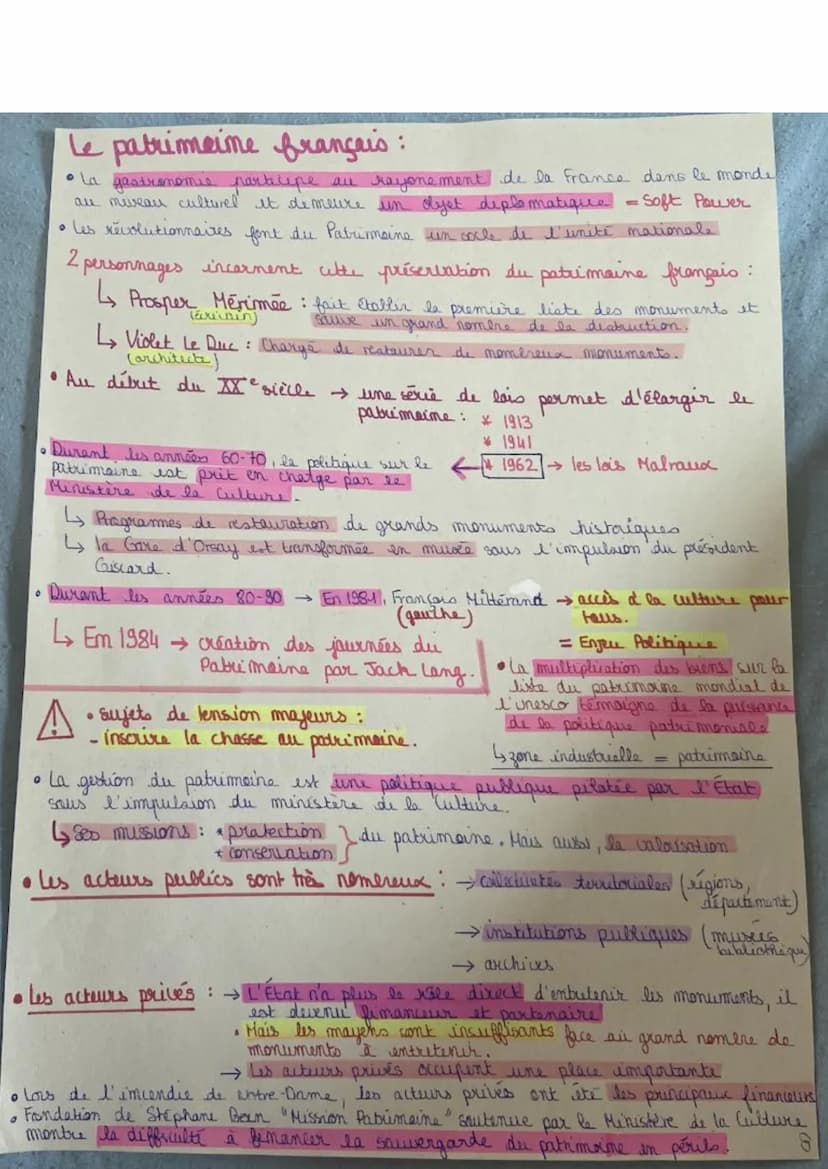 Le patrimoine français :
• La gastronomie participe au rayonement de la France dans le monde
au niveau culturel et demeure un objet diplomatique = Soft Power
• Les révolutionnaires font du Patrimoine un socle de l'unité nationale
2 personnages incarnent cette préservation du patrimoine français :
↳ Prosper Mérimée : fait établir la première liste des monuments et
(écrivain) sauve un grand nombre de la destruction.
↳ Violet Le Duc : Chargé de restaurer de nombreux monuments.
(architecte)
• Au début du XXe siècle → une série de lois permet d'élargir le
patrimoine : * 1913
* 1941
* 1962 → les lois Malraux
• Durant les années 60-70, la politique sur le ←
patrimoine est prit en charge par le
Ministère de la Culture.
↳ Programmes de restauration de grands monuments historiques
↳ la Gare d'Orsay est transformée en musée sous l'impulsion du président
Giscard.
• Durant les années 80-90 → En 1981, François Mittérand → accès à la culture pour
(gauche) tous.
= Enjeu Politique
↳ Em 1984 → création des journées du
Patrimoine par Jack Lang.
• La multiplication des biens sur la
liste du patrimoine mondial de
l'unesco témoigne de la puissance
de la politique patrimoniale
↳ zone industrielle = patrimoine
⚠ • sujets de tension majeurs :
- inscrire la chasse au patrimoine.
• La gestion du patrimoine est une politique publique pilotée par l'État
sous l'impulsion du ministère de la Culture.
↳ Ses missions : * protection
* conservation } du patrimoine. Mais aussi, la valorisation
• Les acteurs publics sont très nombreux : → collectivités territoriales (régions,
département)
→ institutions publiques (musées
bibliothèque)
→ archives
• Les acteurs privés : → L'État n'a plus le rôle direct d'entretenir les monuments, il
est devenu financeur et partenaire
• Mais les moyens sont insuffisants face au grand nombre de
monuments à entretenir.
→ Les acteurs privés occupent une place importante
• Lors de l'incendie de Notre-Dame, les acteurs privés ont été les principaux financeurs
• Fondation de Stéphane Bern "Mission Patrimoine" soutenue par le Ministère de la Culture
montre la difficulté à financer la sauvergarde du patrimoine en périls.